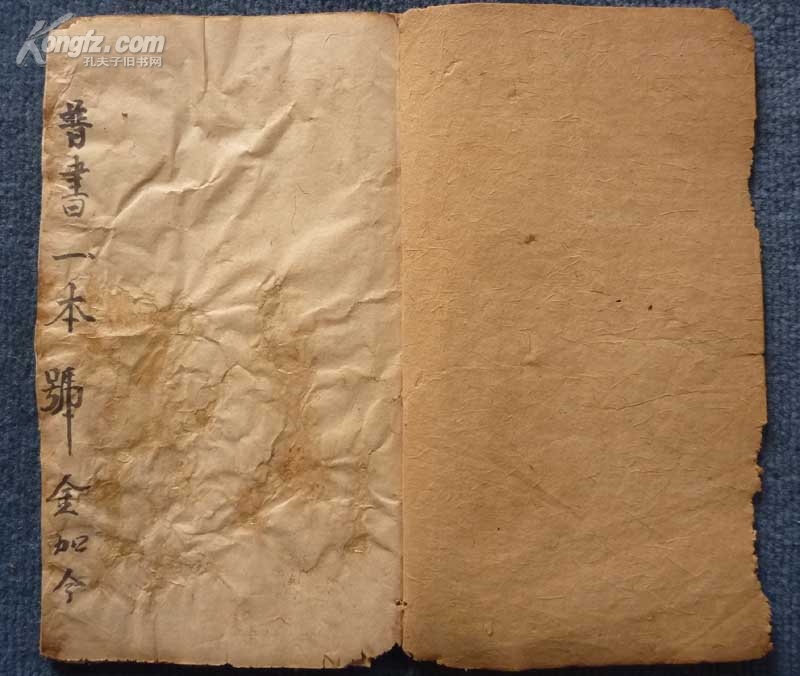 Kongfz.com
孔夫子旧书网
普書一本 號 金加今